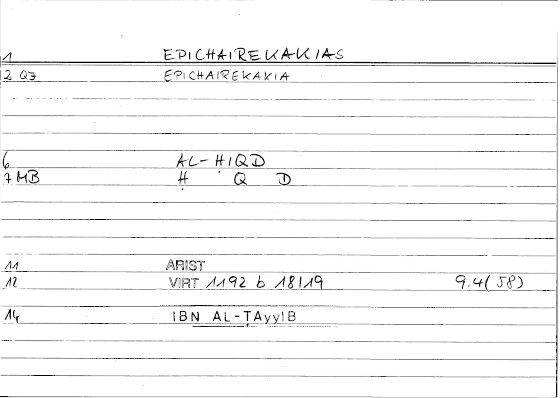 1 EPICHAIREKAKIAS
2 QZ EPICHAIREKAKIA
6 AL-ḤIQD
7 MB Ḥ Q D
11 ARIST
12 VIRT 1192 b 18/19 9.4(58)
14 IBN AL-ṬAyyIB